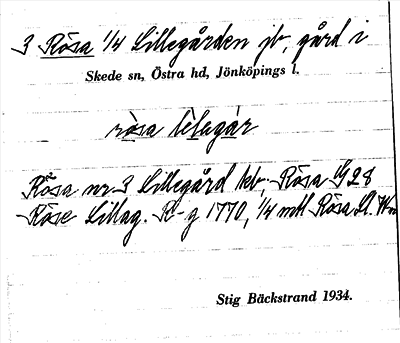 3 Rösa 1/4 Lillegården jb, gård i
Skede sn, Östra hd, Jönköpings l.
rösa lelagar
Rösa nr 3 Lillegård kb, Rösa G 28
Röse Lillag. R-g 1770, 1/4 mtl Rösa
Stig Bäckstrand 1934.